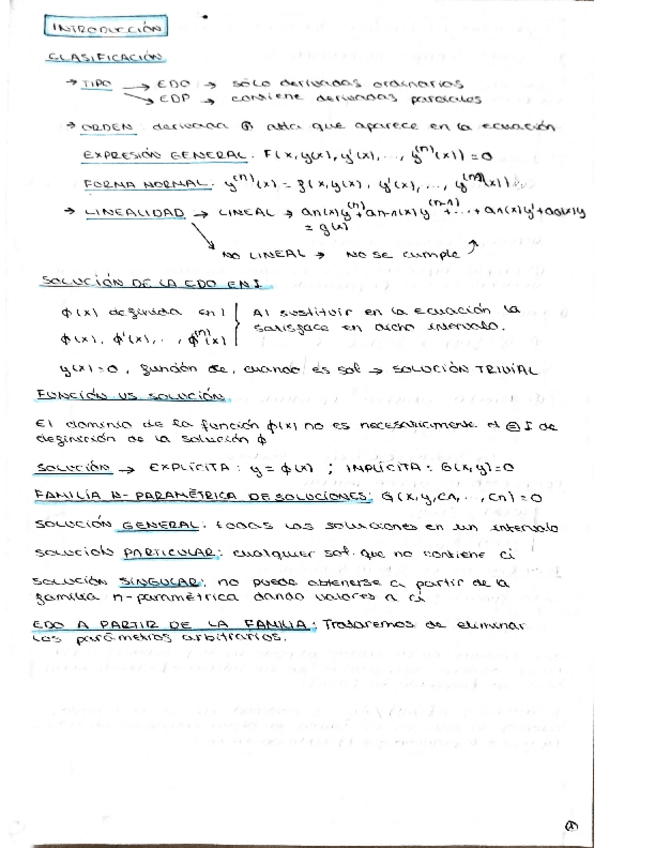 INTRODUCCIÓN
CLASIFICACIÓN
→ TIPO → EDO → sólo derivadas ordinarias
→ EDP → contiene derivadas parciales
→ ORDEN: derivada ⊕ alta que aparece en la ecuación
EXPRESIÓN GENERAL: F(x, y(x), y'(x), ..., y⁽ⁿ⁾(x)) = 0
FORMA NORMAL: y⁽ⁿ⁾(x) = f(x, y(x), y'(x), ..., y⁽ⁿ⁻¹⁾(x))
→ LINEALIDAD → LINEAL → an(x)y⁽ⁿ⁾ + an-1(x)y⁽ⁿ⁻¹⁾ + ... + a1(x)y' + a0(x)y
= g(x)
NO LINEAL → NO SE cumple
SOLUCIÓN DE LA EDO EN I
ϕ(x) definida en I } Al sustituir en la ecuación la
ϕ(x), ϕ'(x), ..., ϕ⁽ⁿ⁾(x) } satisface en dicho intervalo.
y(x)=0, función de, cuando es sol → SOLUCIÓN TRIVIAL
FUNCIÓN VS SOLUCIÓN
El dominio de la función ϕ(x) no es necesariamente el ⊜ I de
definición de la solución ϕ
SOLUCIÓN → EXPLÍCITA: y = ϕ(x) ; IMPLÍCITA: G(x,y)=0
FAMILIA N-PARAMÉTRICA DE SOLUCIONES: G(x,y,c1,...,cn)=0
SOLUCIÓN GENERAL: todas las soluciones en un intervalo
SOLUCIÓN PARTICULAR: cualquier sol. que no contiene ci
SOLUCIÓN SINGULAR: no puede obtenerse a partir de la
familia n-paramétrica dando valores a ci
EDO A PARTIR DE LA FAMILIA: Trataremos de eliminar
los parámetros arbitrarios.
①